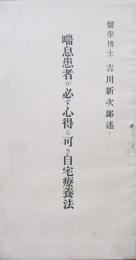 醫學博士 吉川新次郎述
喘息患者が必ず心得る可き自宅療養法